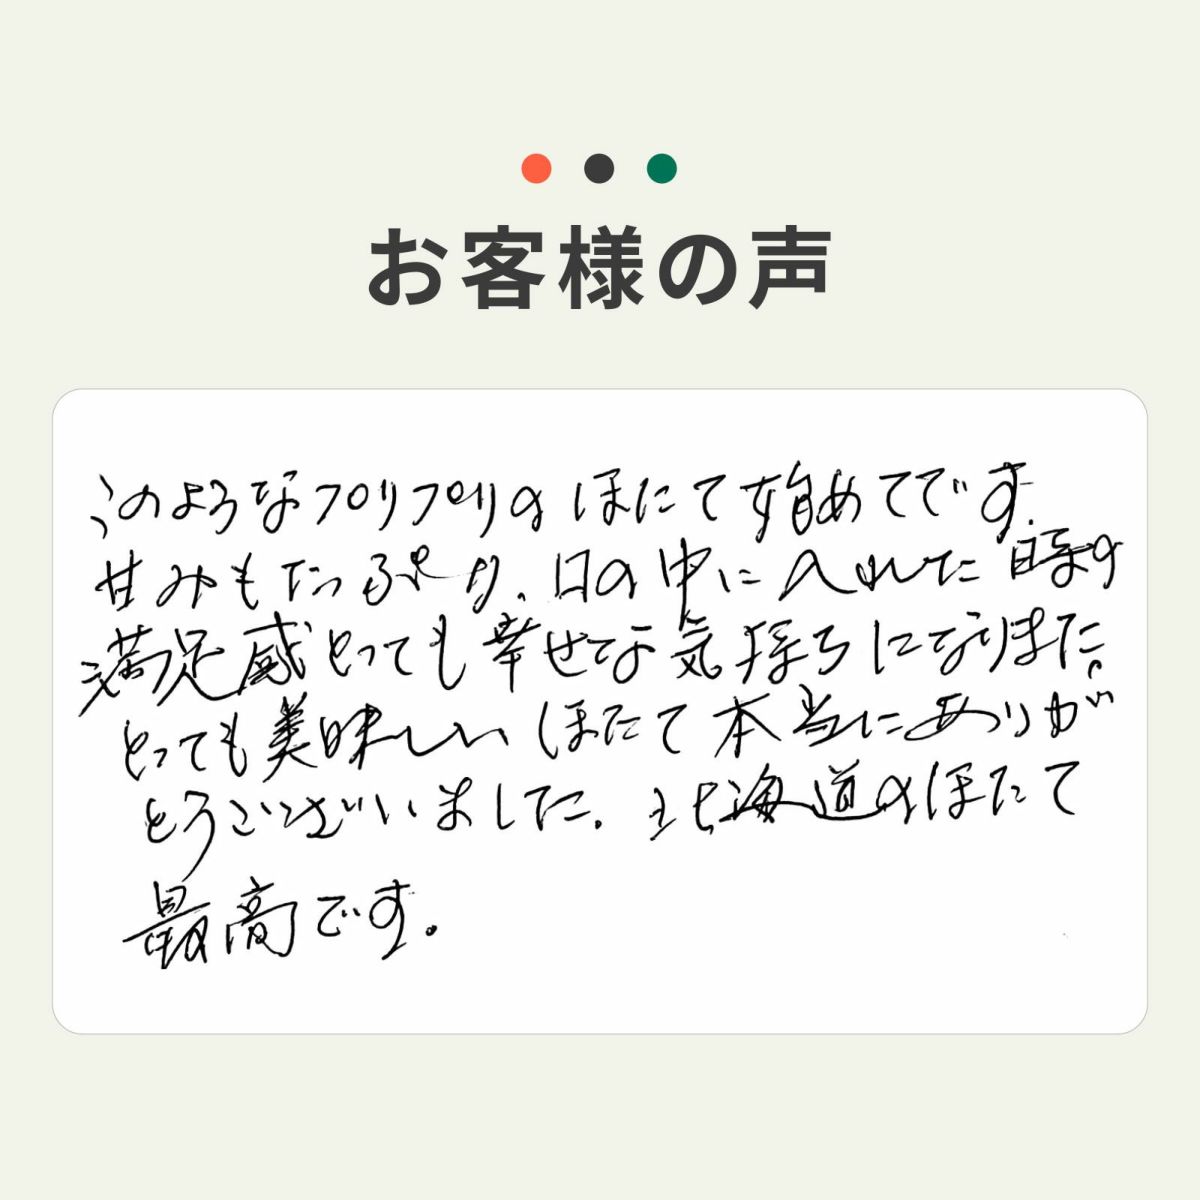 お客様の声
このようなプリプリのほたて始めてです.
甘みもたっぷり、口の中に入れた時の
満足感とっても幸せな気持ちになりました。
とっても美味しいほたて本当にありが
とうございました. 北海道のほたて
最高です。